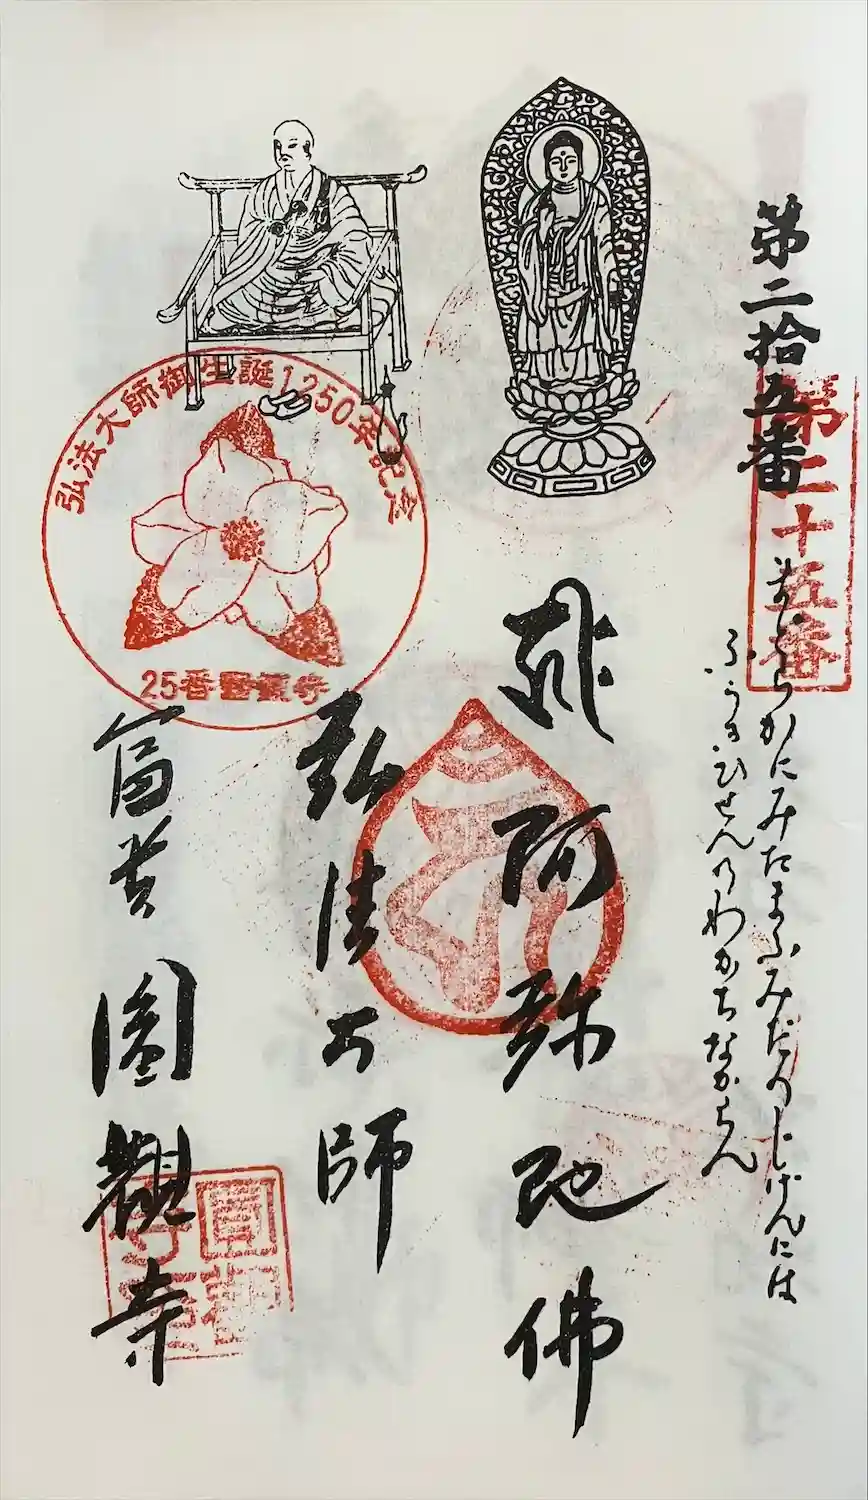 第二拾五番
第二十五番
まどらかにみたまふみだのじげんには
ふうきひせんのわかちなからん
阿弥陀佛
弘法大師
弘法大師御生誕1250年記念
25番圓観寺
富貴 圓觀寺